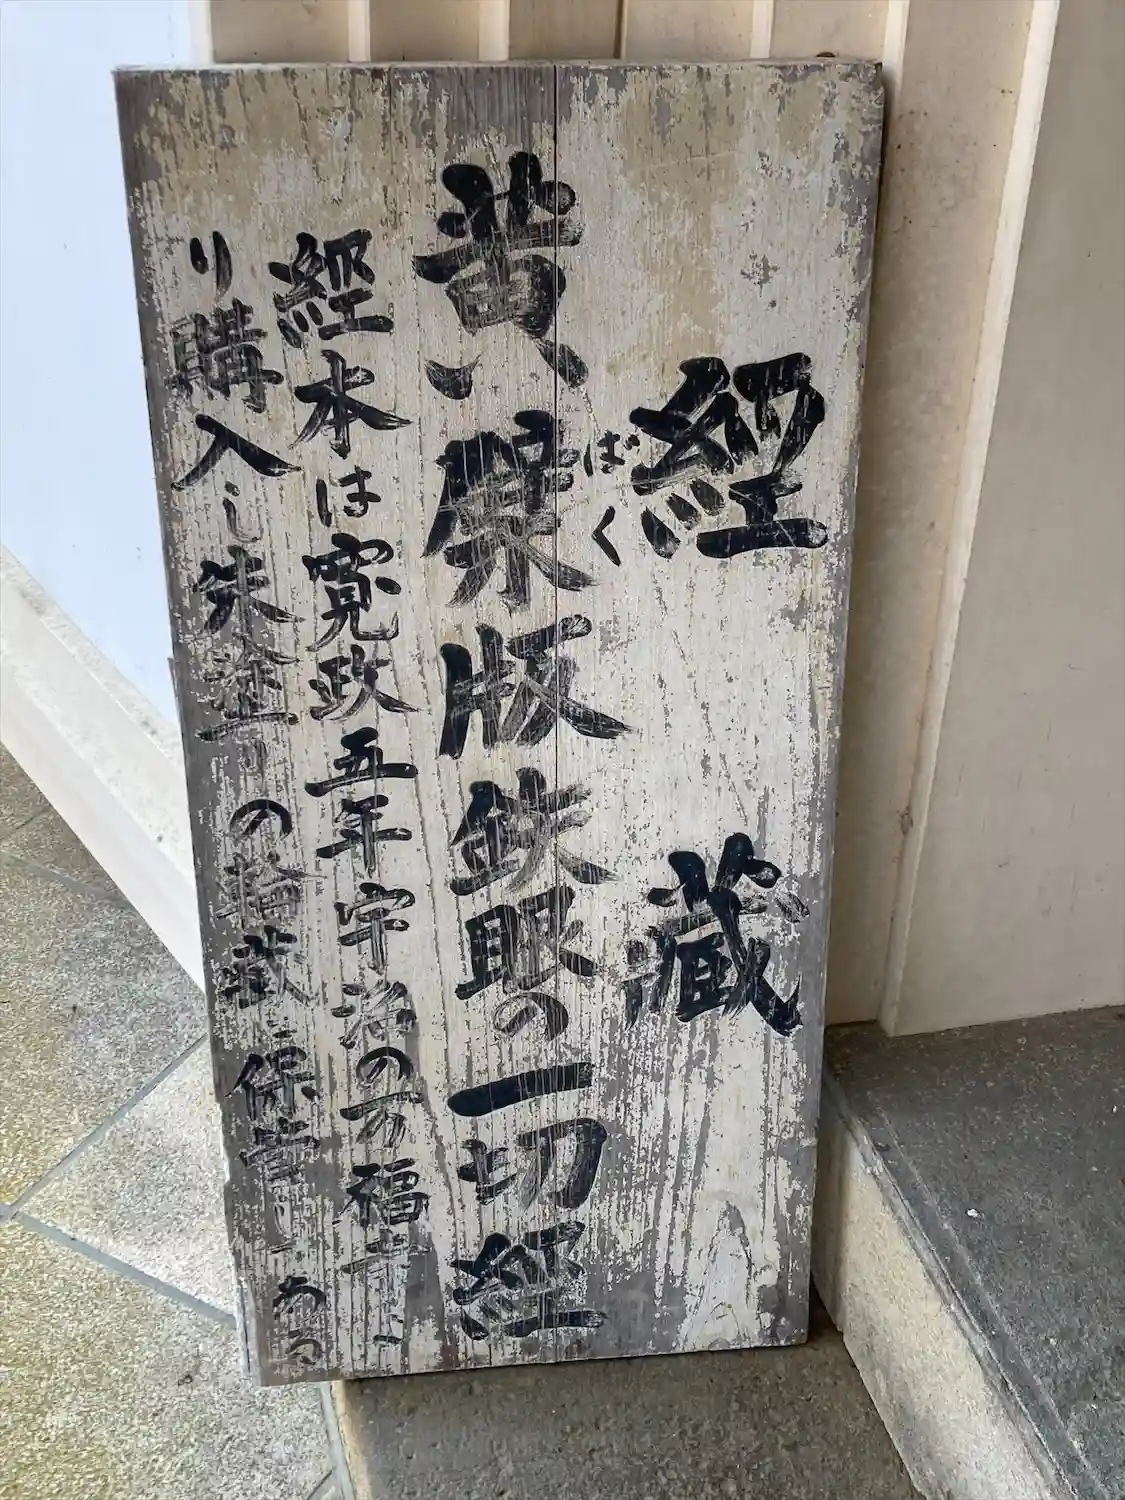 経蔵
黄檗版鉄眼の一切経
ばく
経本は寛政五年宇治の万福寺よ
り購入し朱塗りの輪蔵に保管してある